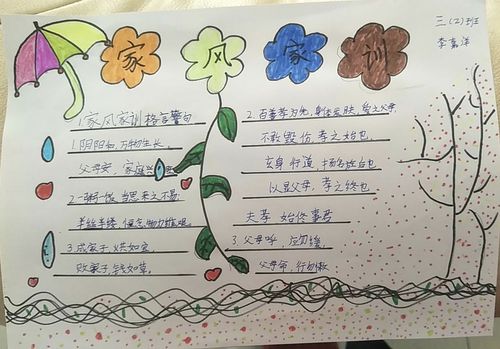 家风家训
三(2)班
李嘉洋
1.家风家训格言警句
1.阴阳和,万物生长,
父母安,家庭兴
2.一粥一饭,当思来之不易
半丝半缕,恒念物力维艰
3.成家子,粪如宝,
败家子,钱如草。
2.百善孝为先,身体发肤,受之父母,
不敢毁伤,孝之始也
立身行道,扬名后世
以显父母,孝之终也
夫孝 始终事君
3.父母呼,应勿缓,
父母命,行勿懒